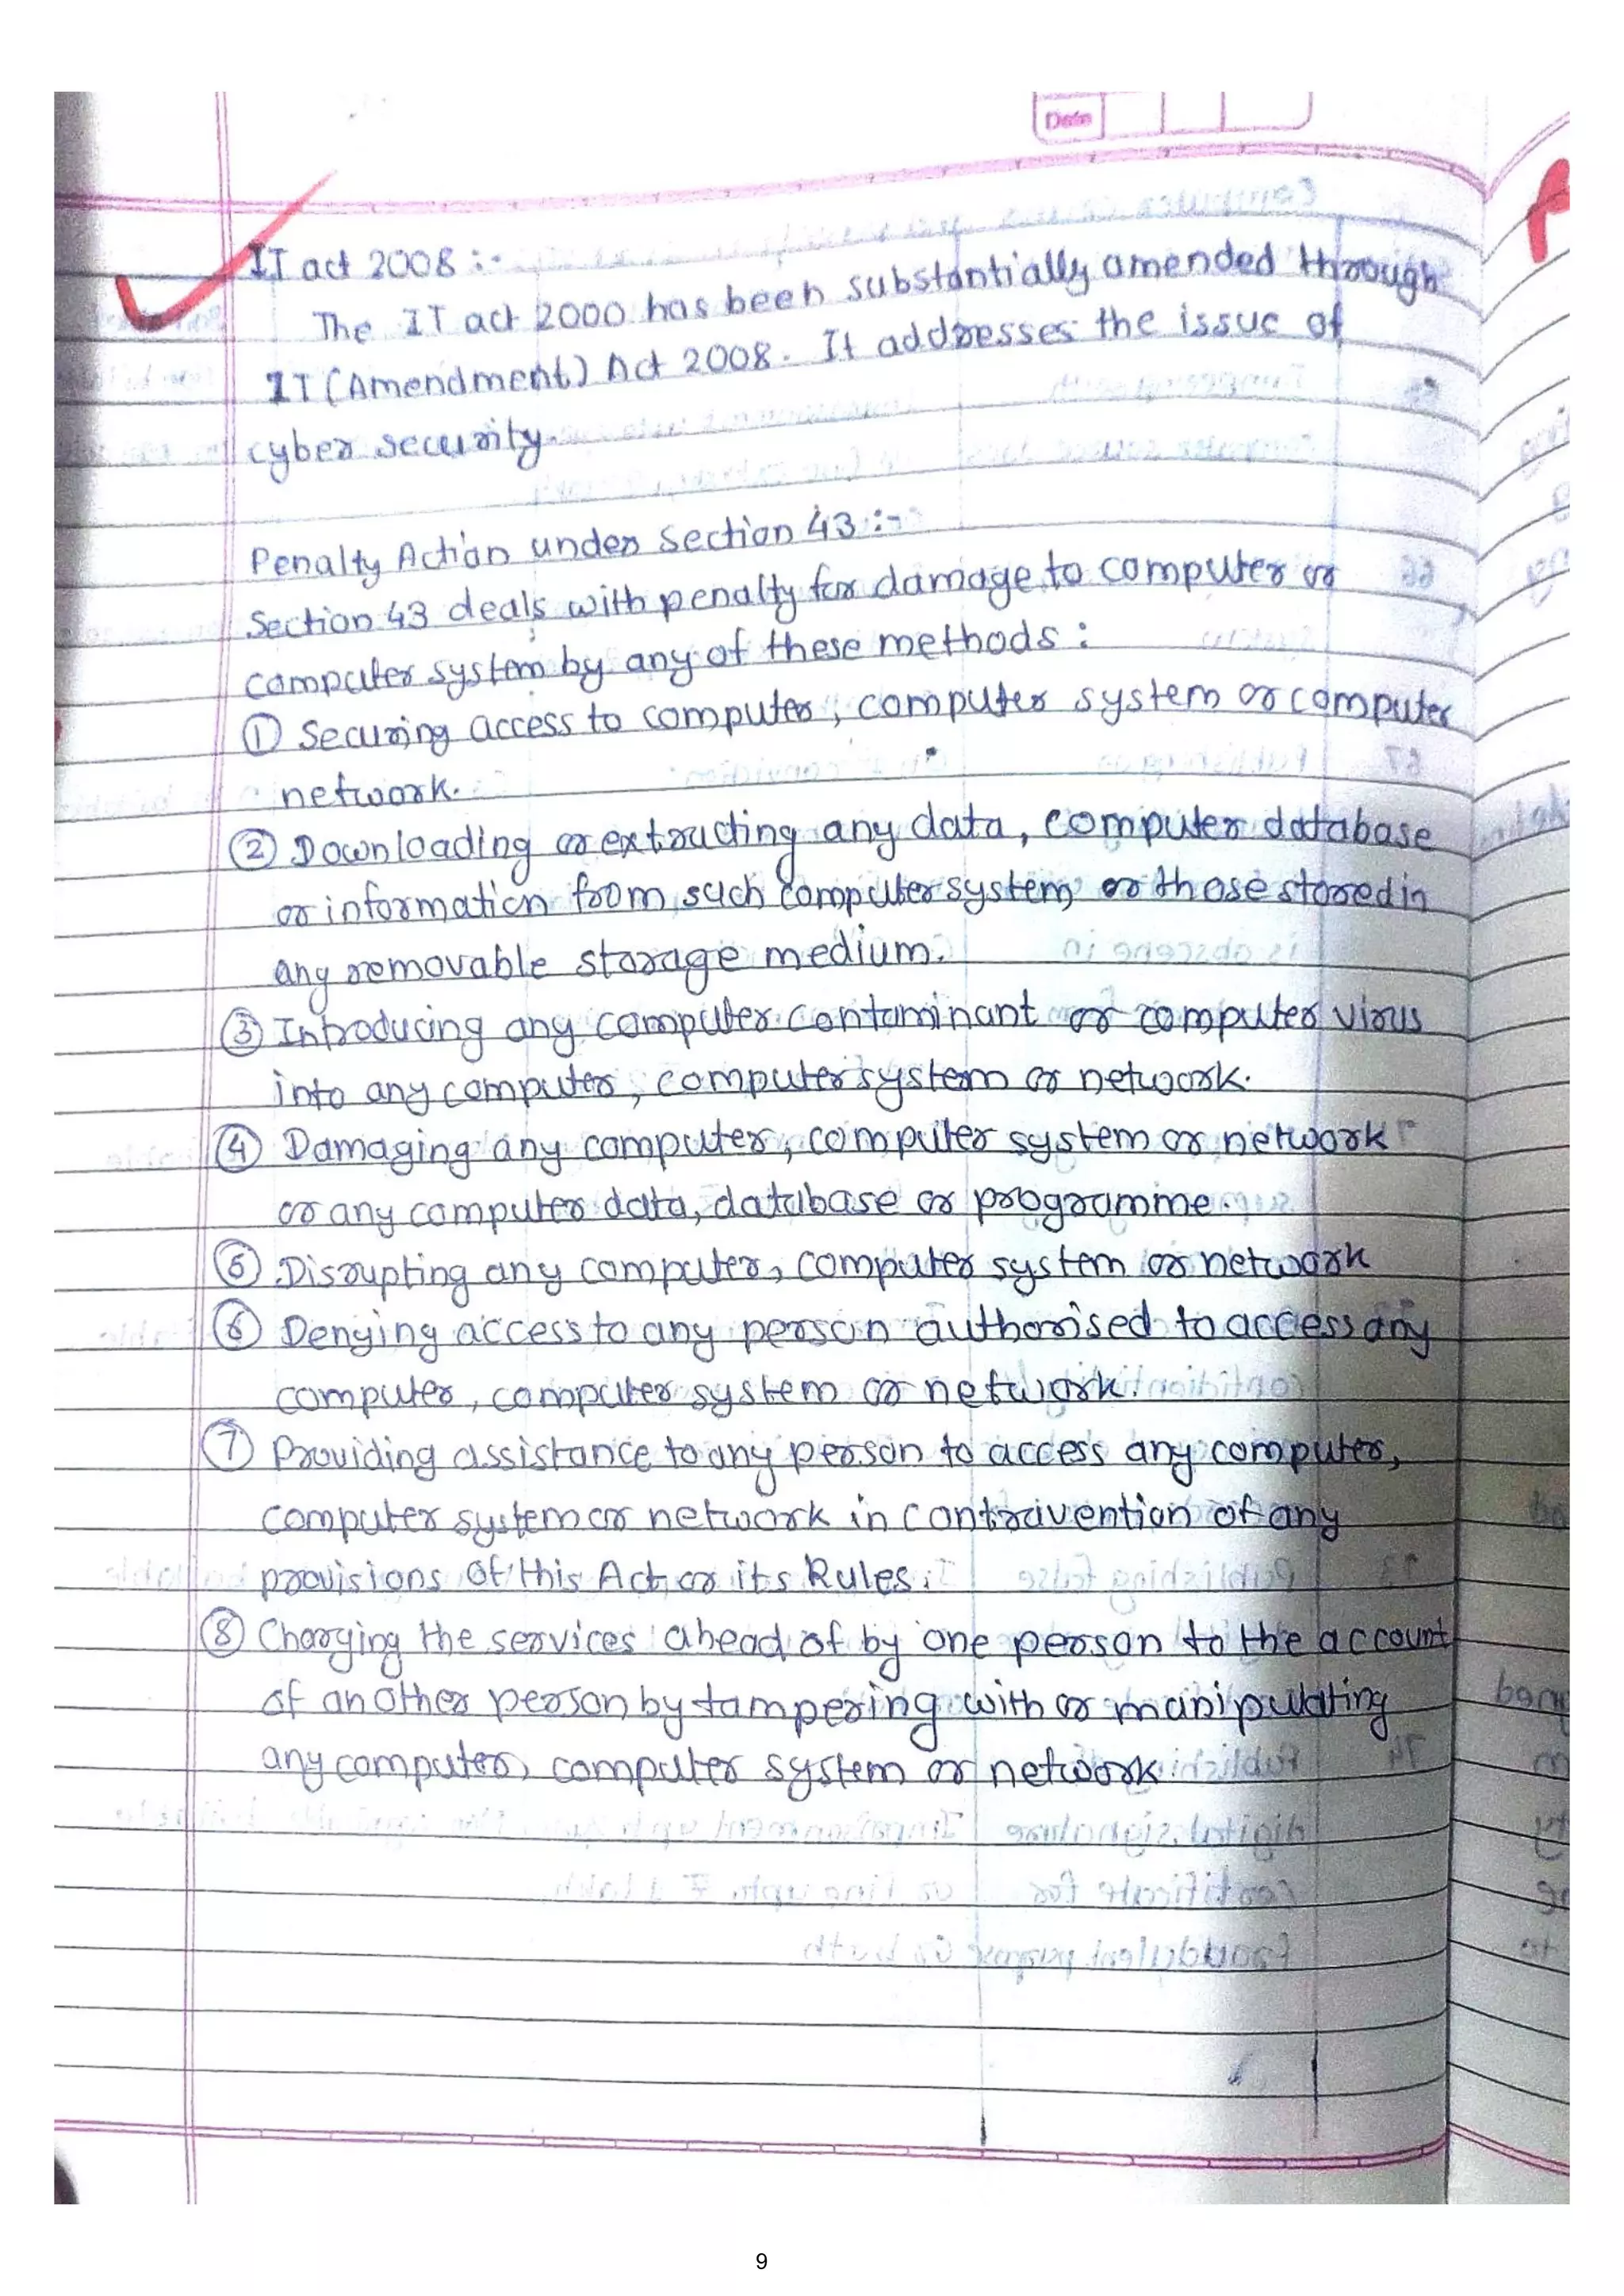 Date
IT act 2008 :-
The IT act 2000 has been substantially amended through
IT (Amendment) Act 2008. It addresses the issue of
cyber security.
Penalty Action under section 43 :-
Section 43 deals with penalty for damage to computer or
computer system by any of these methods :
① Securing access to computer, computer system or computer
network.
② Downloading or extracting any data, computer database
or information from such computer system or those stored in
any removable storage medium.
③ Introducing any computer contaminant or computer virus
into any computer, computer system or network.
④ Damaging any computer, computer system or network
or any computer data, database or programme.
⑤ Disrupting any computer, computer system or network
⑥ Denying access to any person authorised to access any
computer, computer system or network.
⑦ Providing assistance to any person to access any computer,
computer system or network in contravention of any
provisions of this Act or its Rules.
⑧ Charging the services ahead of by one person to the account
of another person by tampering with or manipulating
any computer, computer system or network
9